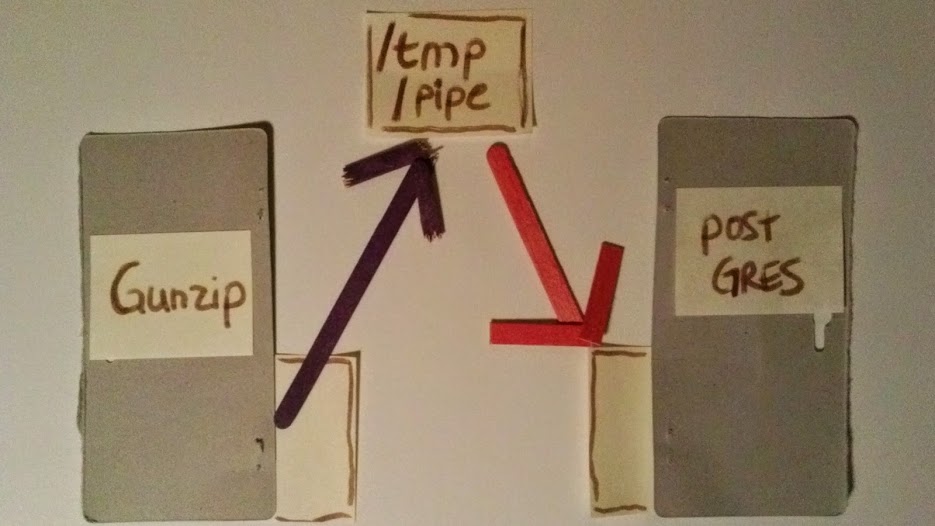 /tmp
/pipe
Gunzip
POST
GRES